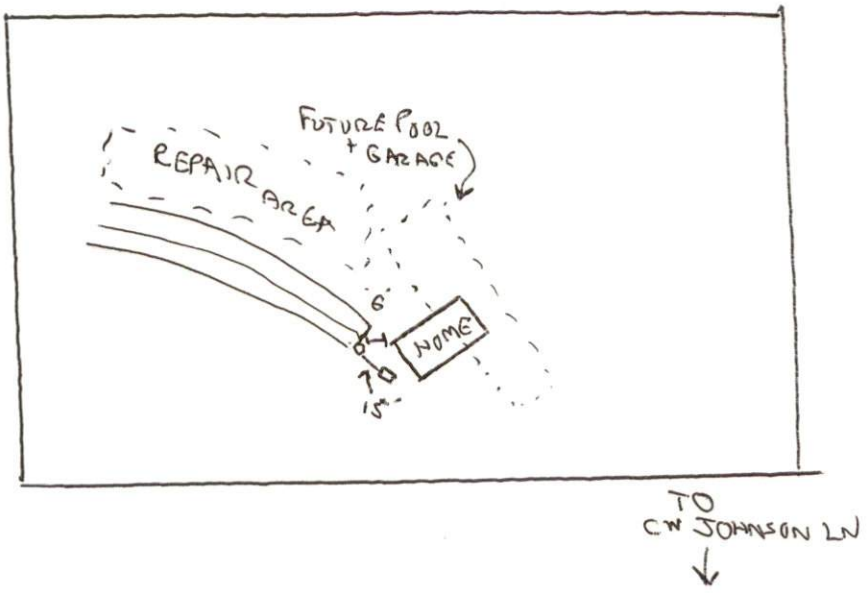 FUTURE POOL
+ GARAGE
REPAIR AREA
6'
HOME
15'
TO
CW JOHNSON LN